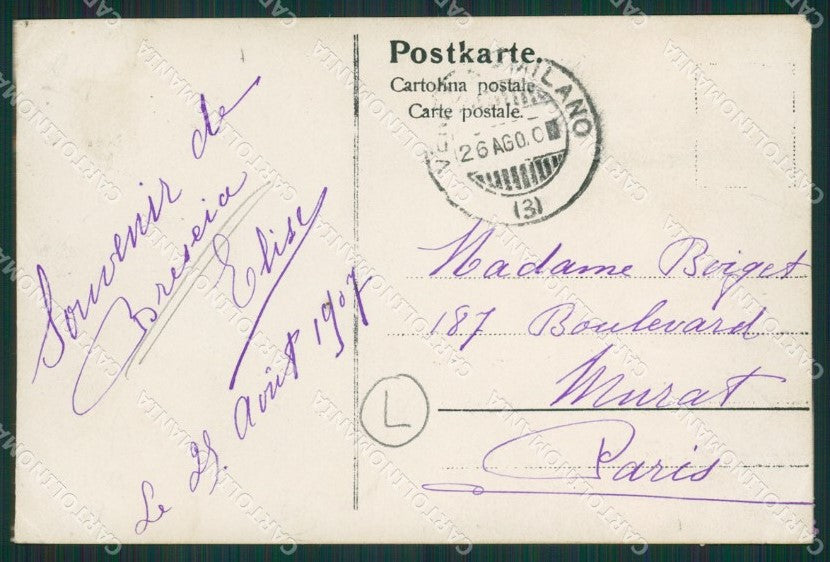 Souvenir de
Brescia
Elise
Le 25 Août 1907
Postkarte.
Cartolina postale
Carte postale.
MILANO
26 AGO. 0
(3)
Madame Boiget
187 Boulevard
Murat
Paris
L
CARTOLINOMANIA